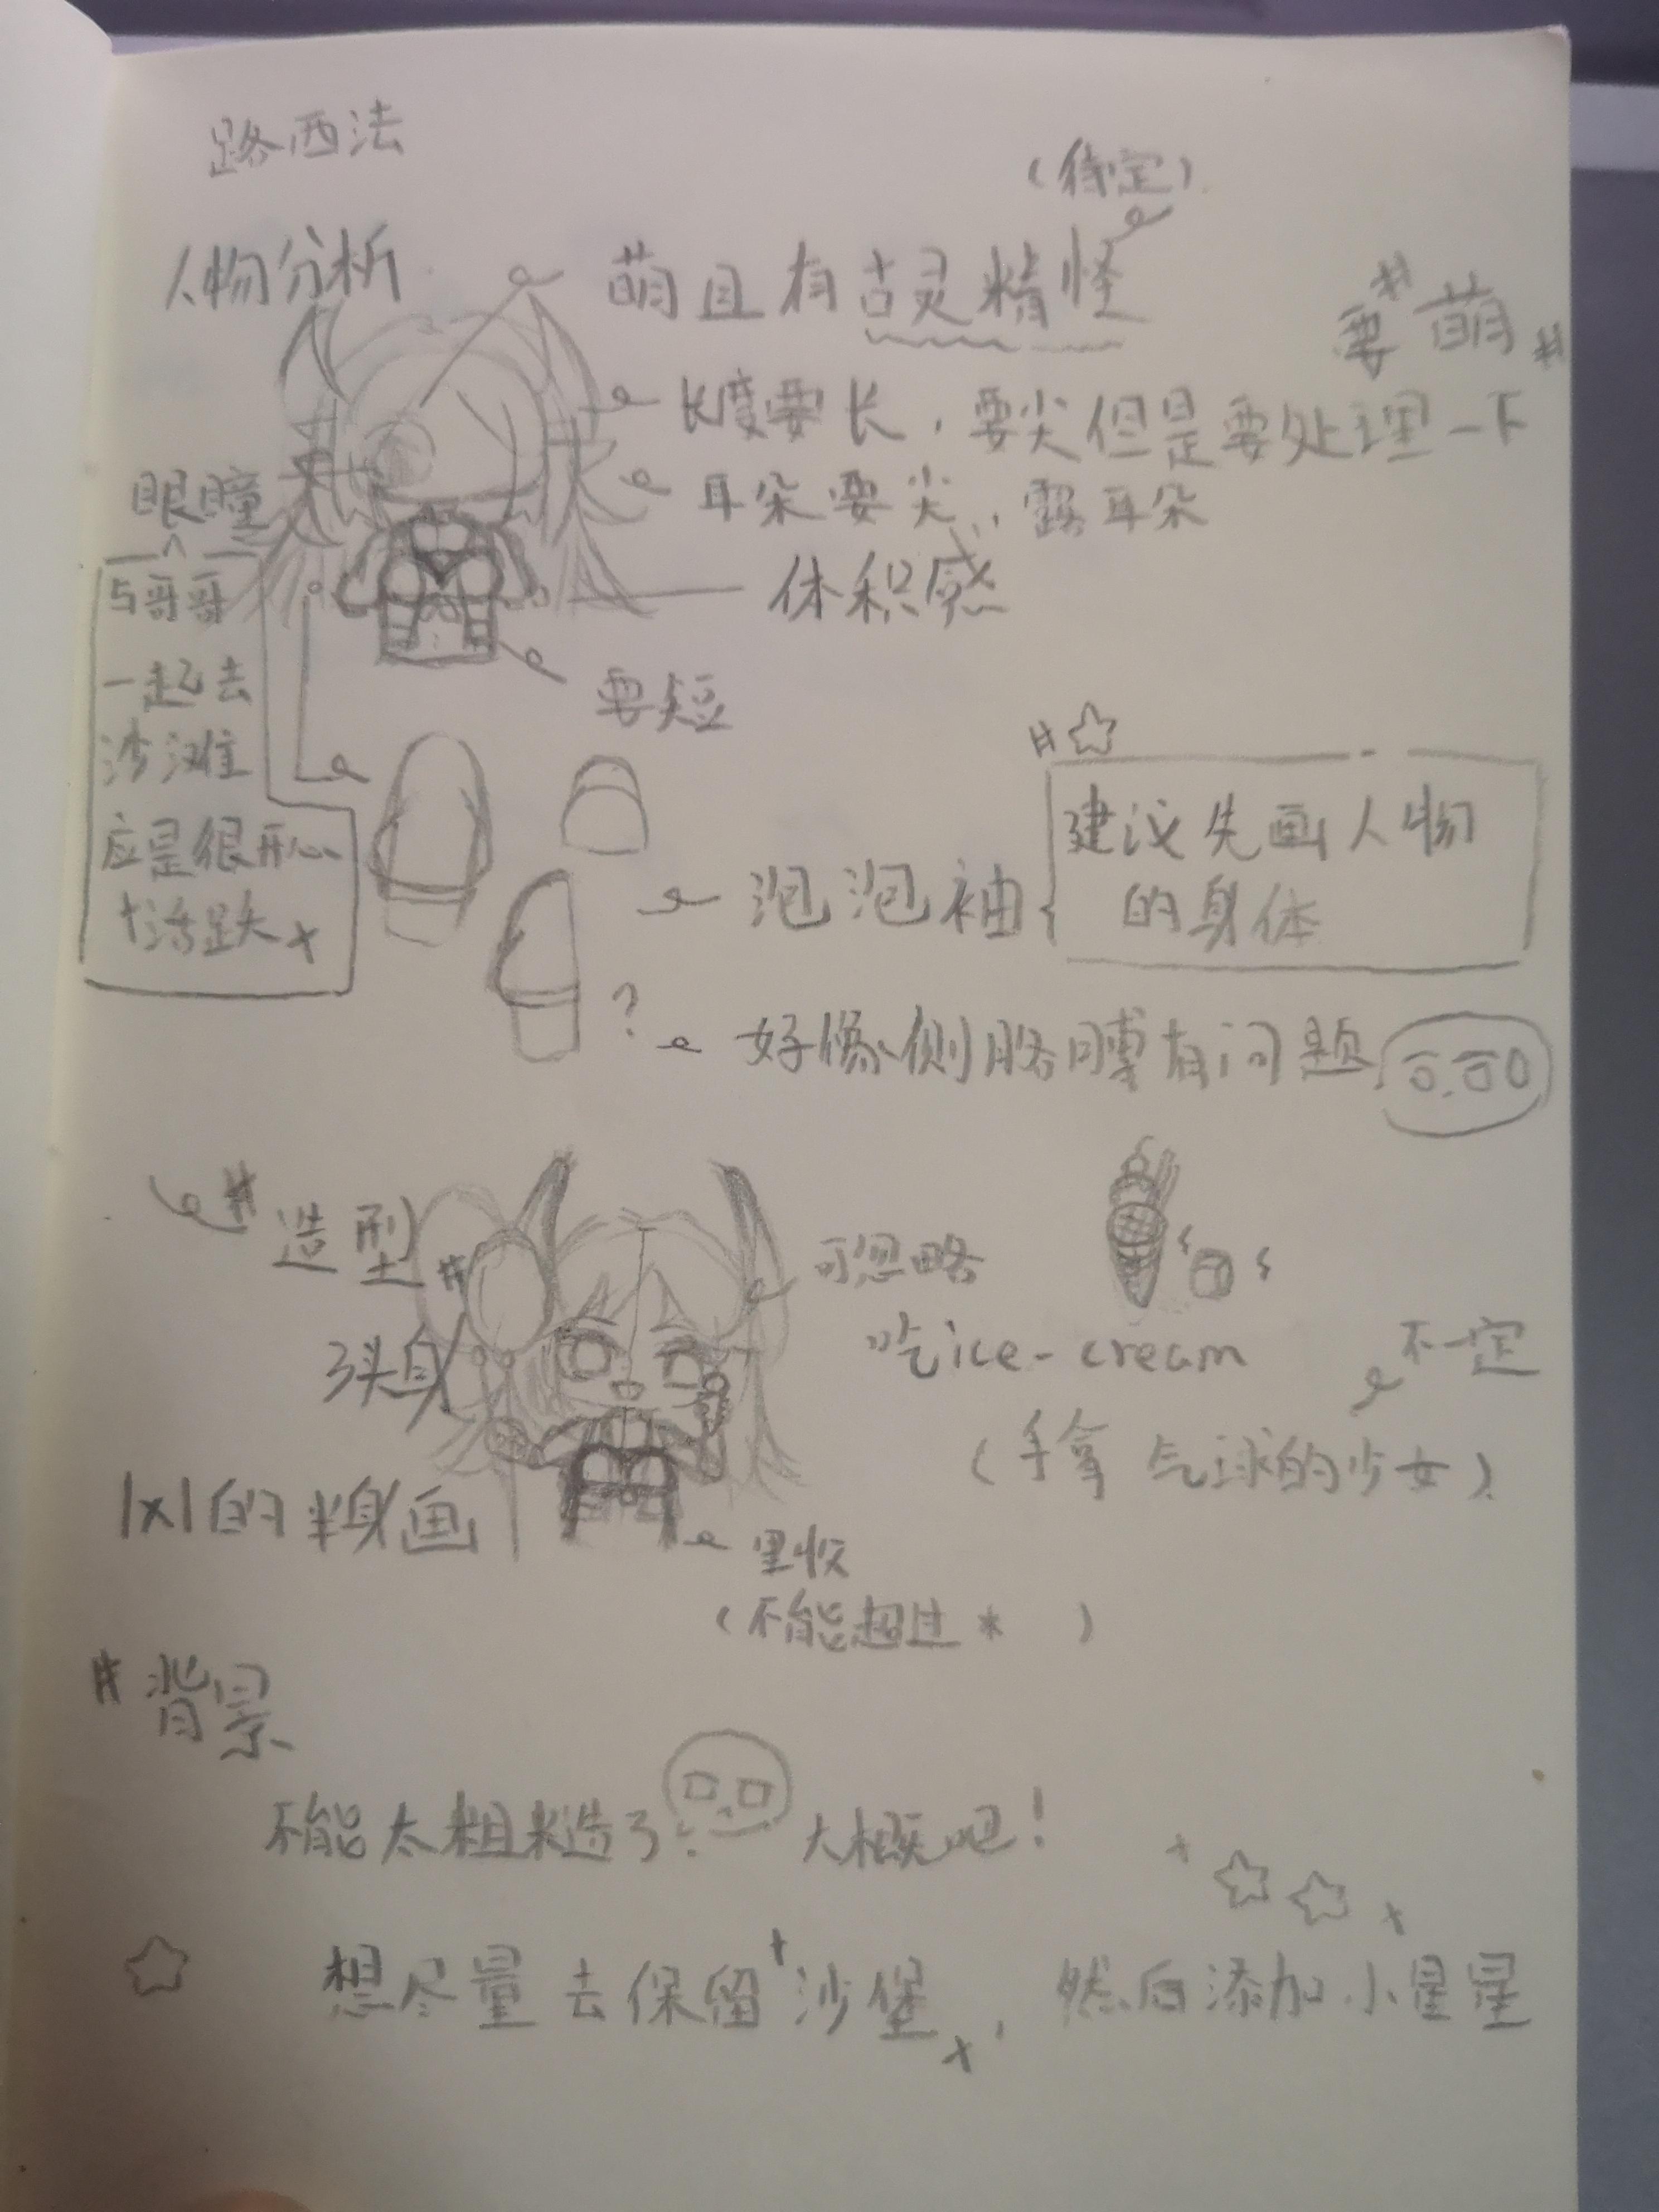 路西法
(待定)
人物分析
萌且有古灵精怪
#要萌#
长度要长，要尖但是要处理一下
耳朵要尖，露耳朵
眼瞳
体积感
与哥哥
一起去
沙滩
应是很开心
+活跃+
要短
#☆
建议先画人物
的身体
泡泡袖
?
好像侧胳膊有问题
#造型#
可忽略
3头身
吃ice-cream
不一定
(手拿气球的少女)
1x1的半身画
里收
(不能超过*)
#背景
不能太粗糙了. 大概吧！
☆ 想尽量去保留+沙堡+，然后添加小星星